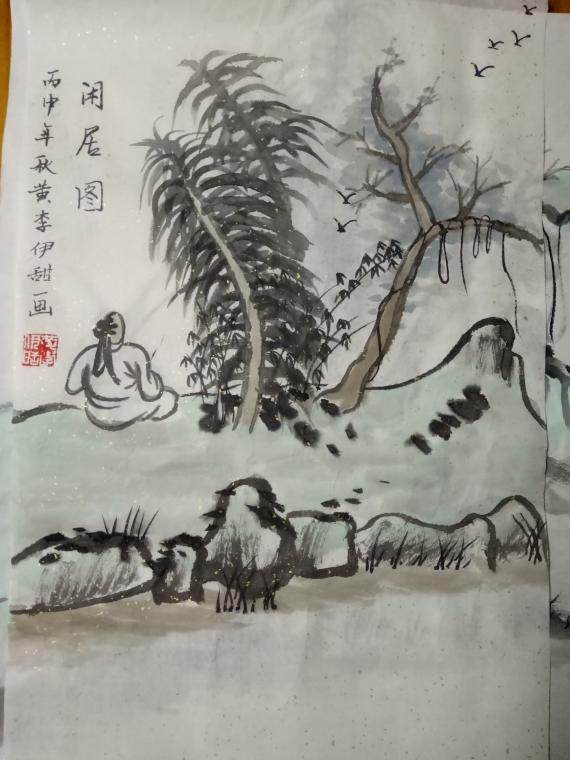 闲居图
丙申年秋黄李伊甜画